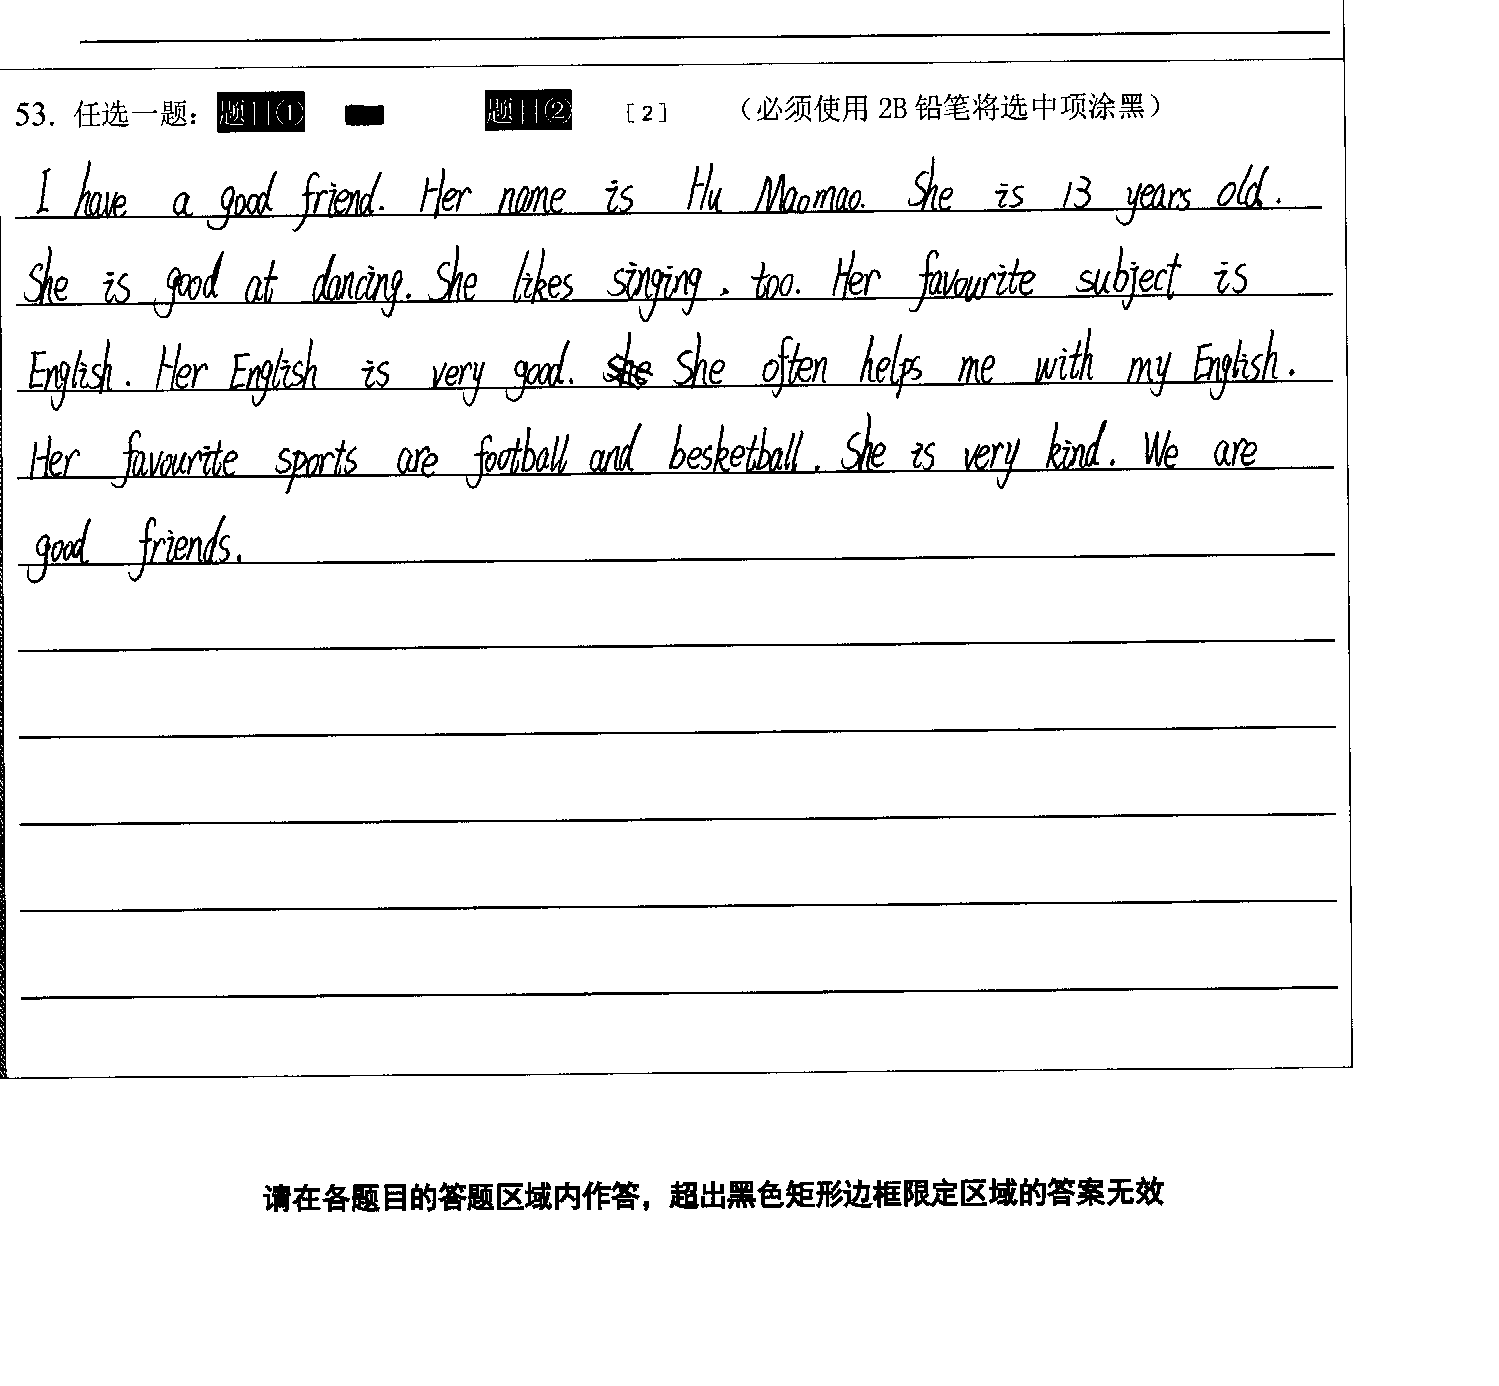 53. 任选一题： 题目① 题目② [2] （必须使用 2B 铅笔将选中项涂黑）
I have a good friend. Her name is Hu Maomao. She is 13 years old.
She is good at dancing. She likes singing, too. Her favourite subject is
English. Her English is very good. She often helps me with my English.
Her favourite sports are football and besketball. She is very kind. We are
good friends.
请在各题目的答题区域内作答，超出黑色矩形边框限定区域的答案无效